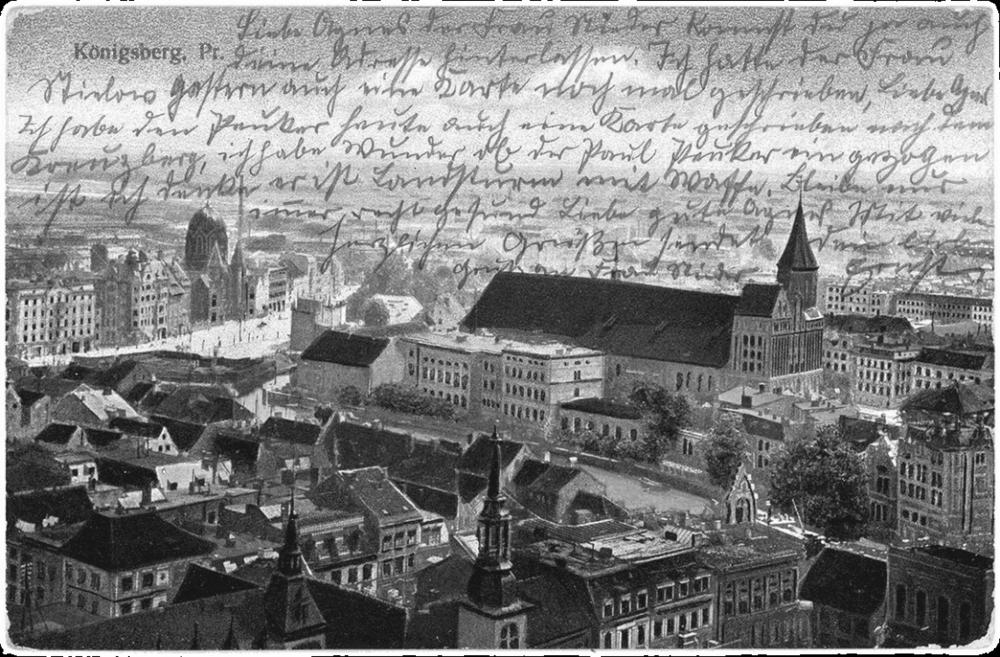 Liebe Agnes der Frau Nieder kannst du ja auch
Königsberg, Pr.
deine Adresse hinterlassen. Ich hatte der Frau
Stielow gestern auch eine Karte noch mal geschrieben, liebe
Ich habe den Peuker heute auch eine Karte geschrieben nach dem
Kreuzberg, ich habe Wunder ob der Paul Peuker ein gezogen
ist. Ich denke er ist Landsturm mit Waffe. Bleibe nur
immer recht gesund Liebe gute Agnes Mit viele
herzlichen Grüßen sendet dein lieber
Gruß an Frau Nieder Ernst